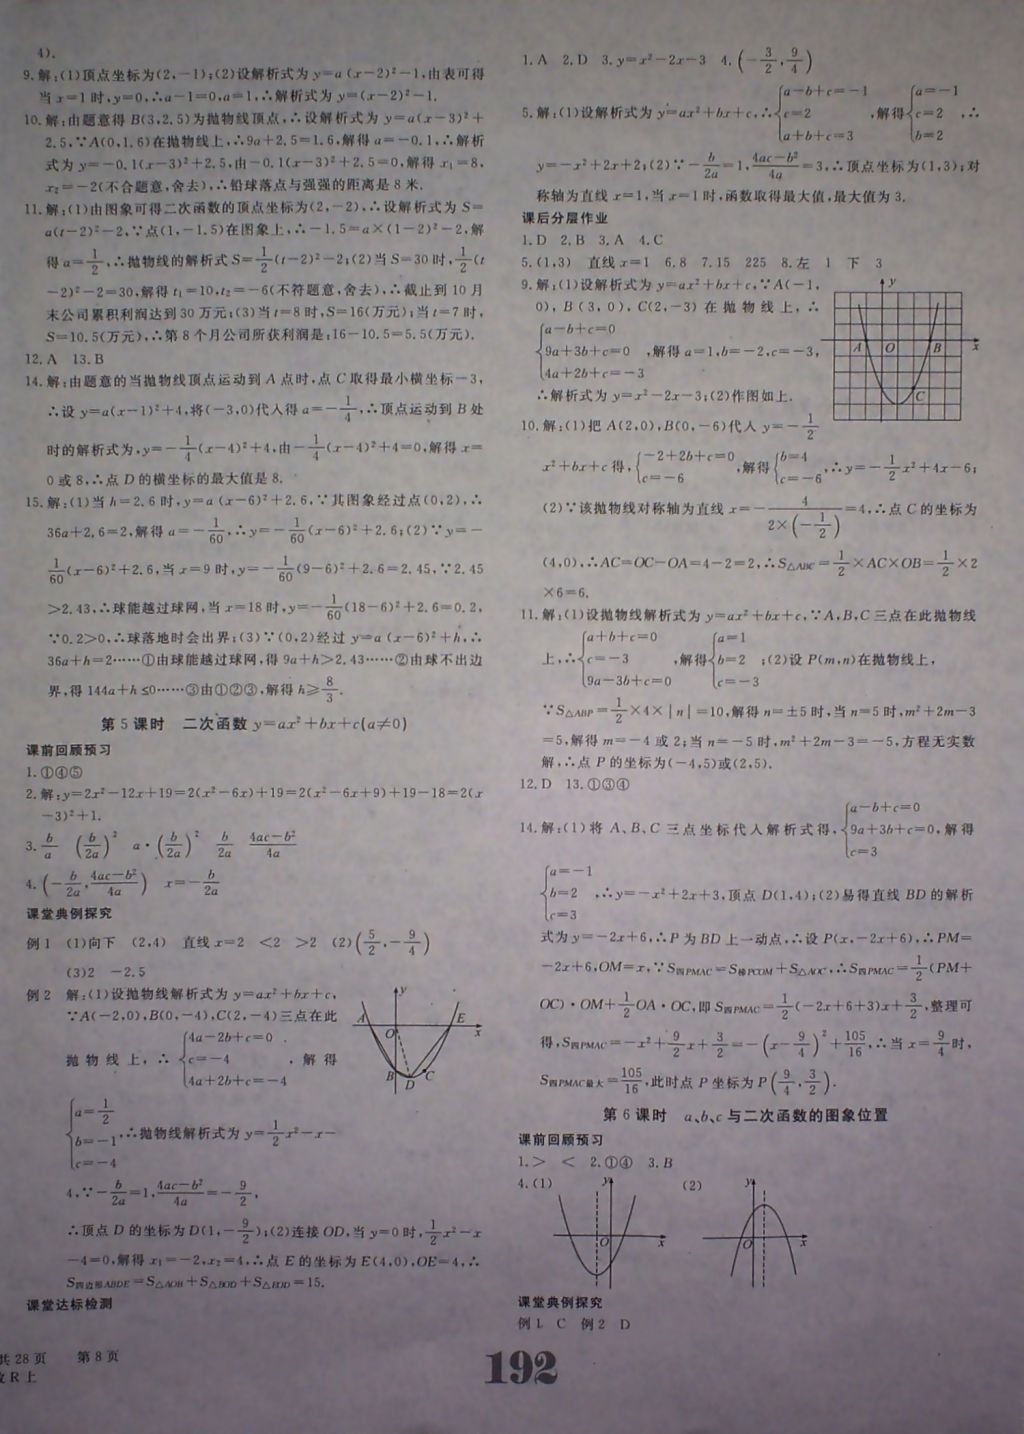 4).
9.解:(1)顶点坐标为(2,-1);(2)设解析式为 y=a(x-2)²-1,由表可得
当 x=1 时,y=0,∴a-1=0,a=1,∴解析式为 y=(x-2)²-1.
10.解:由题意得 B(3,2.5)为抛物线顶点,∴设解析式为 y=a(x-3)²+
2.5,∵A(0,1.6)在抛物线上,∴9a+2.5=1.6,解得 a=-0.1,∴解析
式为 y=-0.1(x-3)²+2.5,由-0.1(x-3)²+2.5=0,解得 x₁=8,
x₂=-2(不合题意,舍去),∴铅球落点与强强的距离是 8 米.
11.解:(1)由图象可得二次函数的顶点坐标为(2,-2),∴设解析式为 S=
a(t-2)²-2,∵点(1,-1.5)在图象上,∴-1.5=a×(1-2)²-2,解
得 a=1/2,∴抛物线的解析式 S=1/2(t-2)²-2;(2)当 S=30 时,1/2(t
-2)²-2=30,解得 t₁=10,t₂=-6(不符题意,舍去),∴截止到 10 月
末公司累积利润达到 30 万元;(3)当 t=8 时,S=16(万元);当 t=7 时,
S=10.5(万元),∴第 8 个月公司所获利润是:16-10.5=5.5(万元).
12.A 13.B
14.解:由题意的当抛物线顶点运动到 A 点时,点 C 取得最小横坐标-3,
∴设 y=a(x-1)²+4,将(-3,0)代人得 a=-1/4,∴顶点运动到 B 处
时的解析式为,y=-1/4(x-4)²+4,由-1/4(x-4)²+4=0,解得 x=
0 或 8,∴点 D 的横坐标的最大值是 8.
15.解:(1)当 h=2.6 时,y=a(x-6)²+2.6,∵其图象经过点(0,2),∴
36a+2.6=2,解得 a=-1/60,∴y=-1/60(x-6)²+2.6;(2)∵y=-
1/60(x-6)²+2.6,当 x=9 时,y=-1/60(9-6)²+2.6=2.45,∵2.45
>2.43,∴球能越过球网,当 x=18 时,y=-1/60(18-6)²+2.6=0.2,
∵0.2>0,∴球落地时会出界;(3)∵(0,2)经过 y=a(x-6)²+h,∴
36a+h=2……①由球能越过球网,得 9a+h>2.43……②由球不出边
界,得 144a+h≤0……③由①②③,解得 h≥8/3.
第 5 课时 二次函数 y=ax²+bx+c(a≠0)
课前回顾预习
1.①④⑤
2.解:y=2x²-12x+19=2(x²-6x)+19=2(x²-6x+9)+19-18=2(x
-3)²+1.
3. b/a (b/2a)² a·(b/2a)² b/2a (4ac-b²)/4a
4.(-b/2a,(4ac-b²)/4a) x=-b/2a
课堂典例探究
例 1 (1)向下 (2,4) 直线 x=2 <2 >2 (2)(5/2,-9/4)
(3)2 -2.5
例 2 解:(1)设抛物线解析式为 y=ax²+bx+c,
∵A(-2,0),B(0,-4),C(2,-4)三点在此
抛物线上,∴{4a-2b+c=0
c=-4
4a+2b+c=-4 ,解得
{a=1/2
b=-1
c=-4 ,∴抛物线解析式为 y=1/2x²-x-
4,∵-b/2a=1,(4ac-b²)/4a=-9/2,
∴顶点 D 的坐标为 D(1,-9/2);(2)连接 OD,当 y=0 时,1/2x²-x
-4=0,解得 x₁=-2,x₂=4,∴点 E 的坐标为 E(4,0),OE=4,∴
S四边形ABDE=S△AOB+S△BOD+S△EOD=15.
课堂达标检测
y
A
O
E
x
B
D
C
1.A 2.D 3.y=x²-2x-3 4.(-3/2,9/4)
5.解:(1)设解析式为 y=ax²+bx+c,∴{a-b+c=-1
c=2
a+b+c=3 ,解得{a=-1
c=2
b=2 ,∴
y=-x²+2x+2;(2)∵-b/2a=1,(4ac-b²)/4a=3,∴顶点坐标为(1,3);对
称轴为直线 x=1,当 x=1 时,函数取得最大值,最大值为 3.
课后分层作业
1.D 2.B 3.A 4.C
5.(1,3) 直线 x=1 6.8 7.15 225 8.左 1 下 3
9.解:(1)设解析式为 y=ax²+bx+c,∵A(-1,
0),B(3,0),C(2,-3)在抛物线上,∴
{a-b+c=0
9a+3b+c=0
4a+2b+c=-3 ,解得 a=1,b=-2,c=-3,
∴解析式为 y=x²-2x-3;(2)作图如上.
y
A
O
B
x
C
10.解:(1)把 A(2,0),B(0,-6)代人 y=-1/2
x²+bx+c 得,{-2+2b+c=0
c=-6 ,解得{b=4
c=-6 ,∴y=-1/2x²+4x-6;
(2)∵该抛物线对称轴为直线 x=-4/(2×(-1/2))=4,∴点 C 的坐标为
(4,0),∴AC=OC-OA=4-2=2,∴S△ABC=1/2×AC×OB=1/2×2
×6=6.
11.解:(1)设抛物线解析式为 y=ax²+bx+c,∵A,B,C 三点在此抛物线
上,∴{a+b+c=0
c=-3
9a-3b+c=0 ,解得{a=1
b=2
c=-3 ;(2)设 P(m,n)在抛物线上,
∵S△ABP=1/2×4×|n|=10,解得 n=±5 时,当 n=5 时,m²+2m-3
=5,解得 m=-4 或 2;当 n=-5 时,m²+2m-3=-5,方程无实数
解,∴点 P 的坐标为(-4,5)或(2,5).
12.D 13.①③④
14.解:(1)将 A、B、C 三点坐标代人解析式得,{a-b+c=0
9a+3b+c=0
c=3 ,解得
{a=-1
b=2
c=3 ,∴y=-x²+2x+3,顶点 D(1,4);(2)易得直线 BD 的解析
式为 y=-2x+6,∴P 为 BD 上一动点,∴设 P(x,-2x+6),∴PM=
-2x+6,OM=x,∵S四PMAC=S梯PCOM+S△AOC,∴S四PMAC=1/2(PM+
OC)·OM+1/2OA·OC,即 S四PMAC=1/2(-2x+6+3)x+3/2,整理可
得,S四PMAC=-x²+9/2x+3/2=-(x-9/4)²+105/16,∴当 x=9/4时,
S四PMAC最大=105/16,此时点 P 坐标为 P(9/4,3/2).
第 6 课时 a、b、c 与二次函数的图象位置
课前回顾预习
1.> < 2.①④ 3.B
4.(1)
y
O
x
(2)
y
O
x
课堂典例探究
例 1 C 例 2 D
共 28 页 第 8 页
R 上
192